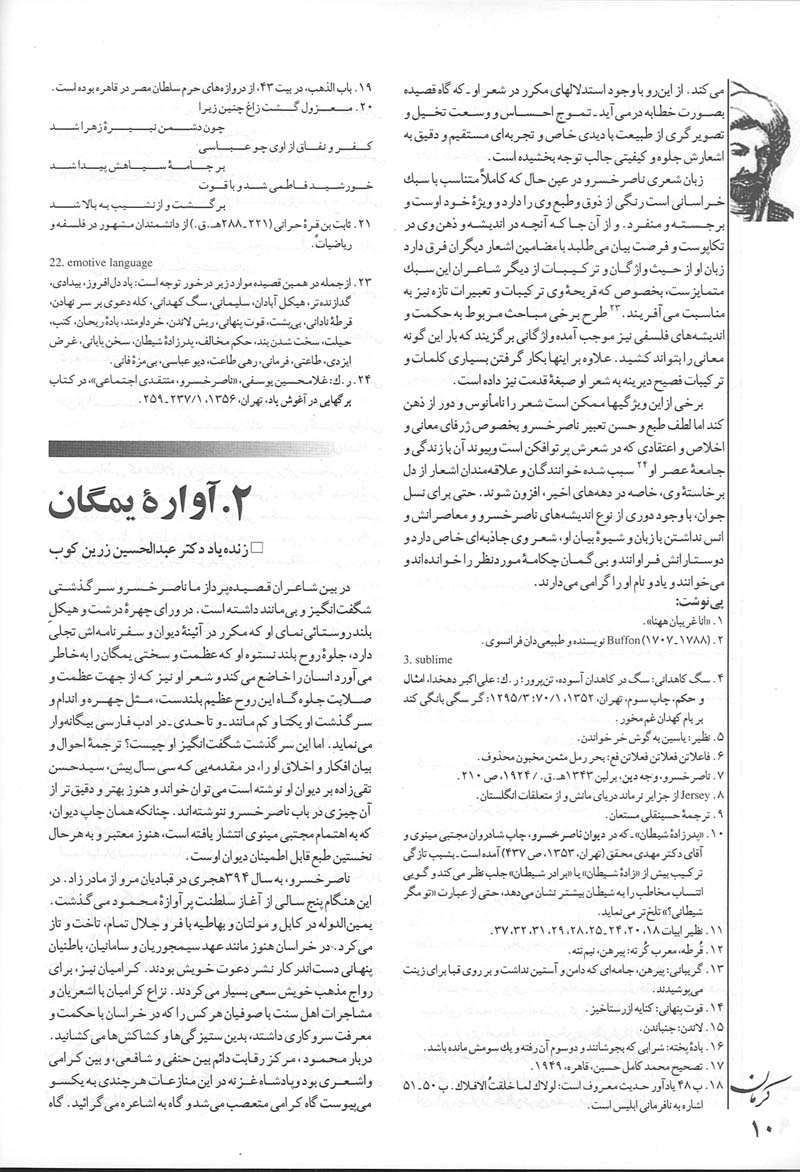 می‌کند. از این‌رو با وجود استدلالهای مکرر در شعر او ـ که گاه قصیده
بصورت خطابه درمی‌آید ـ تموج احساس و وسعت تخیل و
تصویرگری از طبیعت با دیدی خاص و تجربه‌ای مستقیم و دقیق به
اشعارش جلوه و کیفیتی جالب توجه بخشیده است.
زبان شعری ناصرخسرو در عین حال که کاملاً متناسب با سبك
خراسانی است رنگی از ذوق وطبع وی را دارد و ویژۀ خود اوست و
برجسته و منفرد. و از آن جا که آنچه در اندیشه و ذهن وی در
تکاپوست و فرصت بیان می‌طلبد با مضامین اشعار دیگران فرق دارد
زبان او از حیث واژگان و ترکیبات از دیگر شاعران این سبك
متمایزست، بخصوص که قریحۀ وی ترکیبات و تعبیرات تازه نیز به
مناسبت می‌آفریند.۲۳ طرح برخی مباحث مربوط به حکمت و
اندیشه‌های فلسفی نیز موجب آمده واژگانی برگزیند که بار این گونه
معانی را بتواند کشید. علاوه بر اینها بکار گرفتن بسیاری کلمات و
ترکیبات فصیح دیرینه به شعر او صبغۀ قدمت نیز داده است.
برخی از این ویژگیها ممکن است شعر را نامأنوس و دور از ذهن
کند اما لطف طبع و حسن تعبیر ناصرخسرو بخصوص ژرفای معانی و
اخلاص و اعتقادی که در شعرش پرتوافکن است وپیوند آن با زندگی و
جامعۀ عصر او۲۴ سبب شده خوانندگان و علاقه‌مندان اشعار از دل
برخاستۀ وی، خاصه در دهه‌های اخیر، افزون شوند. حتی برای نسل
جوان، با وجود دوری از نوع اندیشه‌های ناصرخسرو و معاصرانش و
انس نداشتن با زبان و شیوۀ بیان او، شعر وی جاذبه‌ای خاص دارد و
دوستارانش فراوانند و بی‌گمان چکامۀ موردنظر را خوانده‌اند و
می‌خوانند و یاد و نام او را گرامی می‌دارند.
پی‌نوشت:
۱. «انا غریبان ههنا».
۲. Buffon (۱۷۰۷ـ۱۷۸۸) نویسنده و طبیعی‌دان فرانسوی.
3. sublime
۴. سگ کاهدانی: سگ در کاهدان آسوده، تن‌پرور؛ ر.ك: علی‌اکبر دهخدا، امثال
و حکم، چاپ سوم، تهران، ۱۳۵۲، ۷۰/۱؛ ۱۲۹۵/۳: گر سگی بانگی کند
بر بام کهدان غم مخور.
۵. نظیر: یاسین به گوش خر خواندن.
۶. فاعلاتن فعلاتن فعلاتن فع: بحر رمل مثمن مخبون محذوف.
۷. ناصرخسرو، وجه دین، برلین ۱۳۴۳هـ.ق. / ۱۹۲۴، ص ۲۱۰.
۸. Jersey از جزایر نرماند دریای مانش و از متعلقات انگلستان.
۹. ترجمۀ حسینقلی مستعان.
۱۰. «پدرزادۀ شیطان» ـ که در دیوان ناصرخسرو، چاپ شادروان مجتبی مینوی و
آقای دکتر مهدی محقق (تهران، ۱۳۵۳، ص ۴۳۷) آمده است ـ بسبب تازگی
ترکیب بیش از «زادۀ شیطان» یا «برادر شیطان» جلب نظر می‌کند و گویی
انتساب مخاطب را به شیطان بیشتر نشان می‌دهد، حتی از عبارت «تو مگر
شیطانی؟» تلخ‌تر می‌نماید.
۱۱. نظیر ابیات ۱۸، ۲۰، ۲۴ـ۲۵، ۲۸، ۲۹، ۳۱، ۳۲، ۳۷ـ
۱۲. قُرطه، معرب کُرته: پیرهن، نیم‌تنه.
۱۳. گریبانی: پیرهن، جامه‌ای که دامن و آستین نداشت و بر روی قبا برای زینت
می‌پوشیدند.
۱۴. قوت پنهانی: کنایه از رستاخیز.
۱۵. لاندن: جنباندن.
۱۶. بادۀ پخته: شرابی که بجوشانند و دوسوم آن رفته و یك سومش مانده باشد.
۱۷. تصحیح محمد کامل حسین، قاهره، ۱۹۴۹.
۱۸. ب ۴۸ یادآور حدیث معروف است: لولاك لما خلقتُ الافلاك. ب ۵۰ـ۵۱
اشاره به نافرمانی ابلیس است.
۱۹. باب الذهب، در بیت ۴۳، از دروازه‌های حرم سلطان مصر در قاهره بوده است.
۲۰. معزول گشت زاغ چنین زیرا
چون دشمن نبیرۀ زهرا شد
کفر و نفاق از اوی چو عباسی
بر جامۀ سیاهش پیدا شد
خورشید فاطمی شد و با قوت
برگشت و از نشیب به بالا شد
۲۱. ثابت بن قرۀ حرانی (۲۲۱ـ۲۸۸هـ.ق.) از دانشمندان مشهور در فلسفه و
ریاضیات.
22. emotive language
۲۳. ازجمله در همین قصیده موارد زیر درخور توجه است: باد دل‌افروز، بیدادی،
گدازنده‌تر، هیکل آبادان، سلیمانی، سگ کهدانی، کله دعوی بر سر نهادن،
قرطۀ نادانی، بی‌پشت، قوت پنهانی، ریش لاندن، خردآومند، بادۀ ریحان، کتب،
حیلت، سخت شدن بند، حکم مخالف، پدرزادۀ شیطان، سخن پایانی، غرض
ایزدی، طاعتی، فرمانی، رهی طاعت، دیو عباسی، بی‌مزۀ فانی.
۲۴. ر.ك: غلامحسین یوسفی، «ناصرخسرو، منتقدی اجتماعی»، در کتاب
برگهایی در آغوش باد، تهران، ۱۳۵۶، ۲۳۷/۱ـ۲۵۹.
۲. آوارۀ یمگان
□ زنده‌یاد دکتر عبدالحسین زرین کوب
در بین شاعران قصیده‌پرداز ما ناصرخسرو سرگذشتی
شگفت‌انگیز و بی‌مانند داشته است. در ورای چهرۀ درشت و هیکل
بلند روستائی‌نمای او که مکرر در آئینۀ دیوان و سفرنامه‌اش تجلی
دارد، جلوۀ روح بلند نستوه او که عظمت و سختی یمگان را به‌خاطر
می‌آورد انسان را خاضع می‌کند و شعر او نیز که از جهت عظمت و
صلابت جلوه‌گاه این روح عظیم بلندست، مثل چهره و اندام و
سرگذشت او یکتا و کم مانند ـ و تا حدی ـ در ادب فارسی بیگانه‌وار
می‌نماید. اما این سرگذشت شگفت‌انگیز او چیست؟ ترجمۀ احوال و
بیان افکار و اخلاق او را، در مقدمه‌یی که سی سال پیش، سیدحسن
تقی‌زاده بر دیوان او نوشته است می‌توان خواند و هنوز بهتر و دقیق‌تر از
آن چیزی در باب ناصرخسرو ننوشته‌اند. چنانکه همان چاپ دیوان،
که به اهتمام مجتبی مینوی انتشار یافته است، هنوز معتبر و به هر حال
نخستین طبع قابل اطمینان دیوان اوست.
ناصرخسرو، به سال ۳۹۴هجری در قبادیان مرو از مادر زاد. در
این هنگام پنج سالی از آغاز سلطنت پرآوازۀ محمود می‌گذشت.
یمین‌الدوله در کابل و مولتان و بهاطیه با فر و جلال تمام، تاخت و تاز
می‌کرد. در خراسان هنوز مانند عهد سیمجوریان و سامانیان، باطنیان
پنهانی دست‌اندر کار نشر دعوت خویش بودند. کرامیان نیز، برای
رواج مذهب خویش سعی بسیار می‌کردند. نزاع کرامیان با اشعریان و
مشاجرات اهل سنت با صوفیان هرکس را که در خراسان با حکمت و
معرفت سروکاری داشتند، بدین ستیزگی‌ها و کشاکش‌ها می‌کشانید.
دربار محمود، مرکز رقابت دائم بین حنفی و شافعی، و بین کرامی
واشعری بود و پادشاه غزنه در این منازعات هرچندی به یکسو
می‌پیوست گاه کرامی متعصب می‌شد و گاه به اشاعره می‌گرائید. گاه
کرمان
۱۰